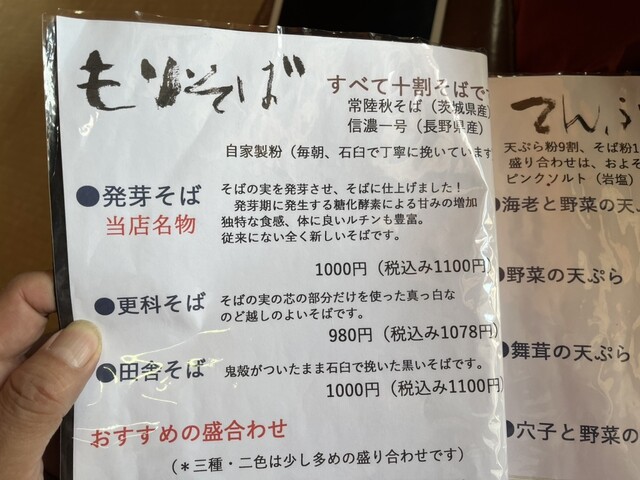 もりそば
すべて十割そばで
常陸秋そば（茨城県産）
信濃一号（長野県産）
自家製粉（毎朝、石臼で丁寧に挽いています
●発芽そば
当店名物
そばの実を発芽させ、そばに仕上げました！
発芽期に発生する糖化酵素による甘みの増加
独特な食感、体に良いルチンも豊富。
従来にない全く新しいそばです。
1000円（税込み1100円）
●更科そば
そばの実の芯の部分だけを使った真っ白な
のど越しのよいそばです。
980円（税込み1078円）
●田舎そば
鬼殻がついたまま石臼で挽いた黒いそばです。
1000円（税込み1100円）
おすすめの盛合わせ
（＊三種・二色は少し多めの盛り合わせです）
てんぷ
天ぷら粉9割、そば粉1
盛り合わせは、およそ
ピンクソルト（岩塩）
●海老と野菜の天
●野菜の天ぷら
●舞茸の天ぷら
●穴子と野菜の